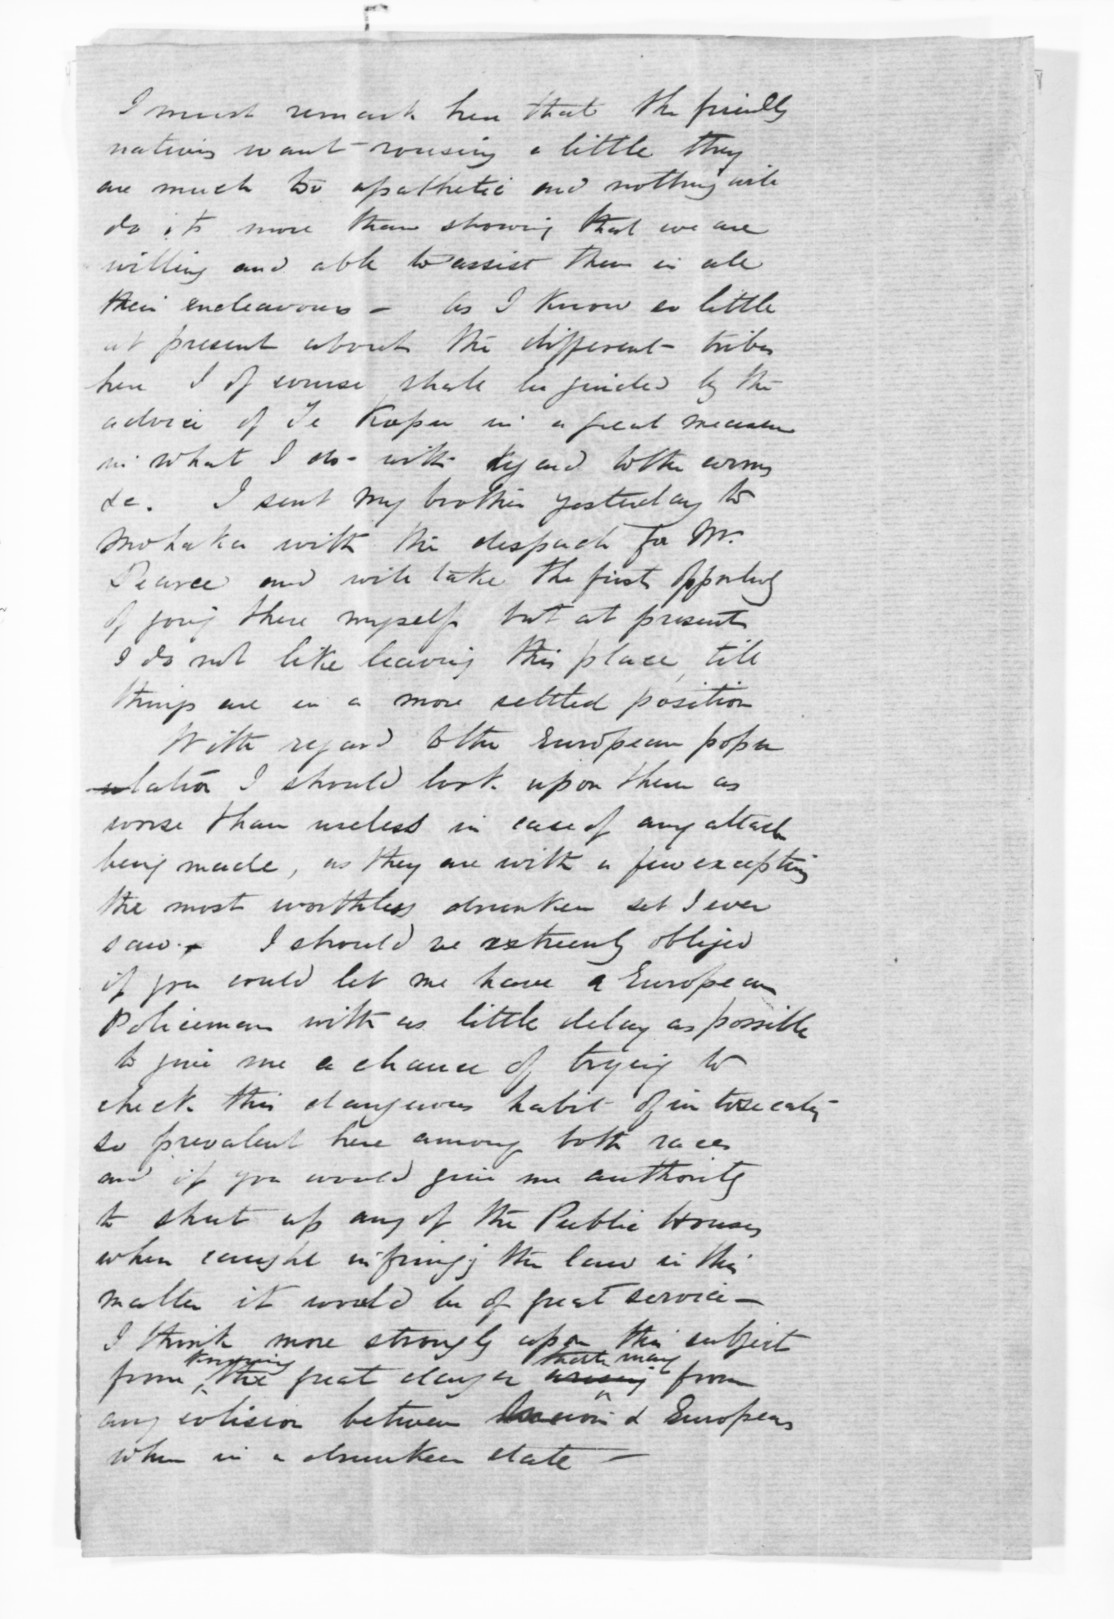 I must remark here that the friendly
natives want rousing a little they
are much too apathetic and nothing will
do it more than showing that we are
willing and able to assist them in all
their endeavours – As I know so little
at present about the different tribes
here I of course shall be guided by the
advice of Te Kopu in a great measure
in what I do – with regard to the arms
&c. I sent my brother yesterday to
Mohaka with the despatch for Mr.
Pearce and will take the first opportunity
of going there myself but at present
I do not like leaving this place till
things are in a more settled position
With regard to the European popu
ulation I should look upon them as
worse than useless in case of any attack
being made, as they are with a few exceptions
the most worthless drunken set I ever
saw. I should be extremely obliged
if you could let me have a European
Policeman with as little delay as possible
to give me a chance of trying to
check this dangerous habit of intoxication
so prevalent here among both races
and if you would give me authority
to shut up any of the Public Houses
when caught infringing the law in this
matter it would be of great service –
I think more strongly upon this subject
from knowing the great danger arising that may from
any collision between & Europeans
when in a drunken state –